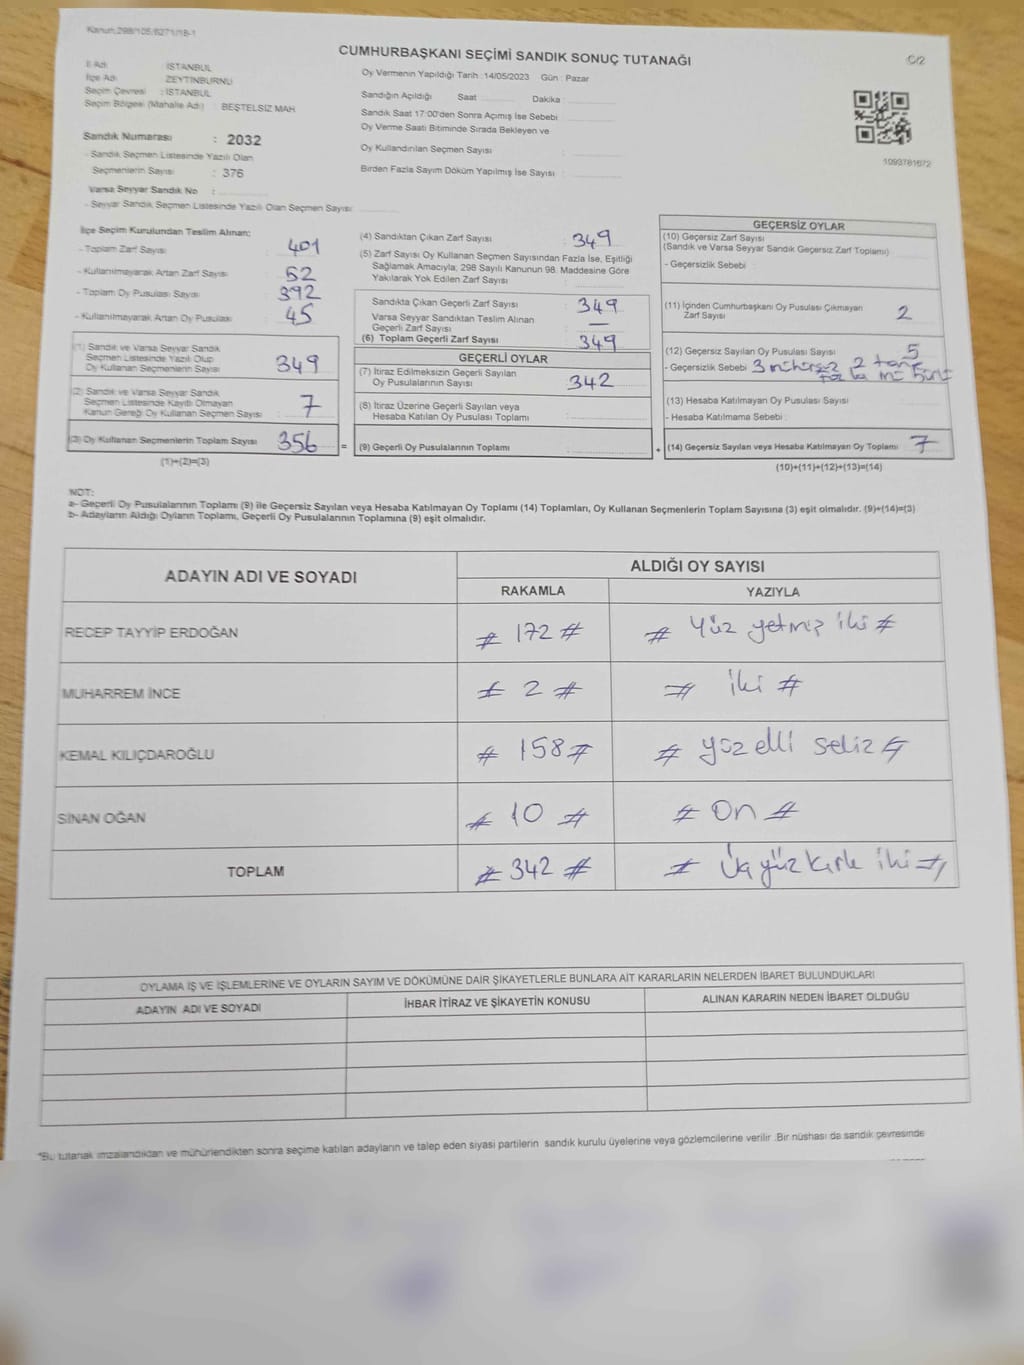 Kanun:298/105,6271/18-1
CUMHURBAŞKANI SEÇİMİ SANDIK SONUÇ TUTANAĞI
C/2
İl Adı : İSTANBUL
İlçe Adı : ZEYTİNBURNU
Seçim Çevresi : İSTANBUL
Seçim Bölgesi (Mahalle Adı) : BEŞTELSİZ MAH
Sandık Numarası : 2032
- Sandık Seçmen Listesinde Yazılı Olan
Seçmenlerin Sayısı : 376
Varsa Seyyar Sandık No :
- Seyyar Sandık Seçmen Listesinde Yazılı Olan Seçmen Sayısı:
Oy Vermenin Yapıldığı Tarih :14/05/2023 Gün : Pazar
Sandığın Açıldığı Saat Dakika :
Sandık Saat 17:00'den Sonra Açımış İse Sebebi :
Oy Verme Saati Bitiminde Sırada Bekleyen ve
Oy Kullandırılan Seçmen Sayısı :
Birden Fazla Sayım Döküm Yapılmış İse Sayısı :
1093761672
İlçe Seçim Kurulundan Teslim Alınan:
- Toplam Zarf Sayısı : 401
- Kullanılmayarak Artan Zarf Sayısı : 52
- Toplam Oy Pusulası Sayısı : 392
- Kullanılmayarak Artan Oy Pusulası : 45
(1) Sandık ve Varsa Seyyar Sandık
Seçmen Listesinde Yazılı Olup
Oy Kullanan Seçmenlerin Sayısı : 349
(2) Sandık ve Varsa Seyyar Sandık
Seçmen Listesinde Kayıtlı Olmayan
Kanun Gereği Oy Kullanan Seçmen Sayısı : 7
(3) Oy Kullanan Seçmenlerin Toplam Sayısı : 356 =
(1)+(2)=(3)
(4) Sandıktan Çıkan Zarf Sayısı : 349
(5) Zarf Sayısı Oy Kullanan Seçmen Sayısından Fazla İse, Eşitliği
Sağlamak Amacıyla, 298 Sayılı Kanunun 98. Maddesine Göre
Yakılarak Yok Edilen Zarf Sayısı :
Sandıkta Çıkan Geçerli Zarf Sayısı : 349
Varsa Seyyar Sandıktan Teslim Alınan
Geçerli Zarf Sayısı : —
(6) Toplam Geçerli Zarf Sayısı : 349
GEÇERLİ OYLAR
(7) İtiraz Edilmeksizin Geçerli Sayılan
Oy Pusulalarının Sayısı : 342
(8) İtiraz Üzerine Geçerli Sayılan veya
Hesaba Katılan Oy Pusulası Toplamı :
(9) Geçerli Oy Pusulalarının Toplamı : +
GEÇERSİZ OYLAR
(10) Geçersiz Zarf Sayısı
(Sandık ve Varsa Seyyar Sandık Geçersiz Zarf Toplamı) :
- Geçersizlik Sebebi :
(11) İçinden Cumhurbaşkanı Oy Pusulası Çıkmayan
Zarf Sayısı : 2
(12) Geçersiz Sayılan Oy Pusulası Sayısı : 5
- Geçersizlik Sebebi 3 mühürsüz 2 tane
(13) Hesaba Katılmayan Oy Pusulası Sayısı :
- Hesaba Katılmama Sebebi :
(14) Geçersiz Sayılan veya Hesaba Katılmayan Oy Toplamı : 7
(10)+(11)+(12)+(13)=(14)
NOT:
a- Geçerli Oy Pusulalarının Toplamı (9) ile Geçersiz Sayılan veya Hesaba Katılmayan Oy Toplamı (14) Toplamları, Oy Kullanan Seçmenlerin Toplam Sayısına (3) eşit olmalıdır. (9)+(14)=(3)
b- Adayların Aldığı Oyların Toplamı, Geçerli Oy Pusulalarının Toplamına (9) eşit olmalıdır.
ADAYIN ADI VE SOYADI ALDIĞI OY SAYISI
RAKAMLA YAZIYLA
RECEP TAYYİP ERDOĞAN # 172 # # Yüz yetmiş iki #
MUHARREM İNCE # 2 # # iki #
KEMAL KILIÇDAROĞLU # 158 # # yüz elli sekiz #
SİNAN OĞAN # 10 # # On #
TOPLAM # 342 # # Üç yüz kırk iki #
OYLAMA İŞ VE İŞLEMLERİNE VE OYLARIN SAYIM VE DÖKÜMÜNE DAİR ŞİKAYETLERLE BUNLARA AİT KARARLARIN NELERDEN İBARET BULUNDUKLARI
ADAYIN ADI VE SOYADI İHBAR İTİRAZ VE ŞİKAYETİN KONUSU ALINAN KARARIN NEDEN İBARET OLDUĞU
*Bu tutanak imzalandıktan ve mühürlendikten sonra seçime katılan adayların ve talep eden siyasi partilerin sandık kurulu üyelerine veya gözlemcilerine verilir .Bir nüshası da sandık çevresinde